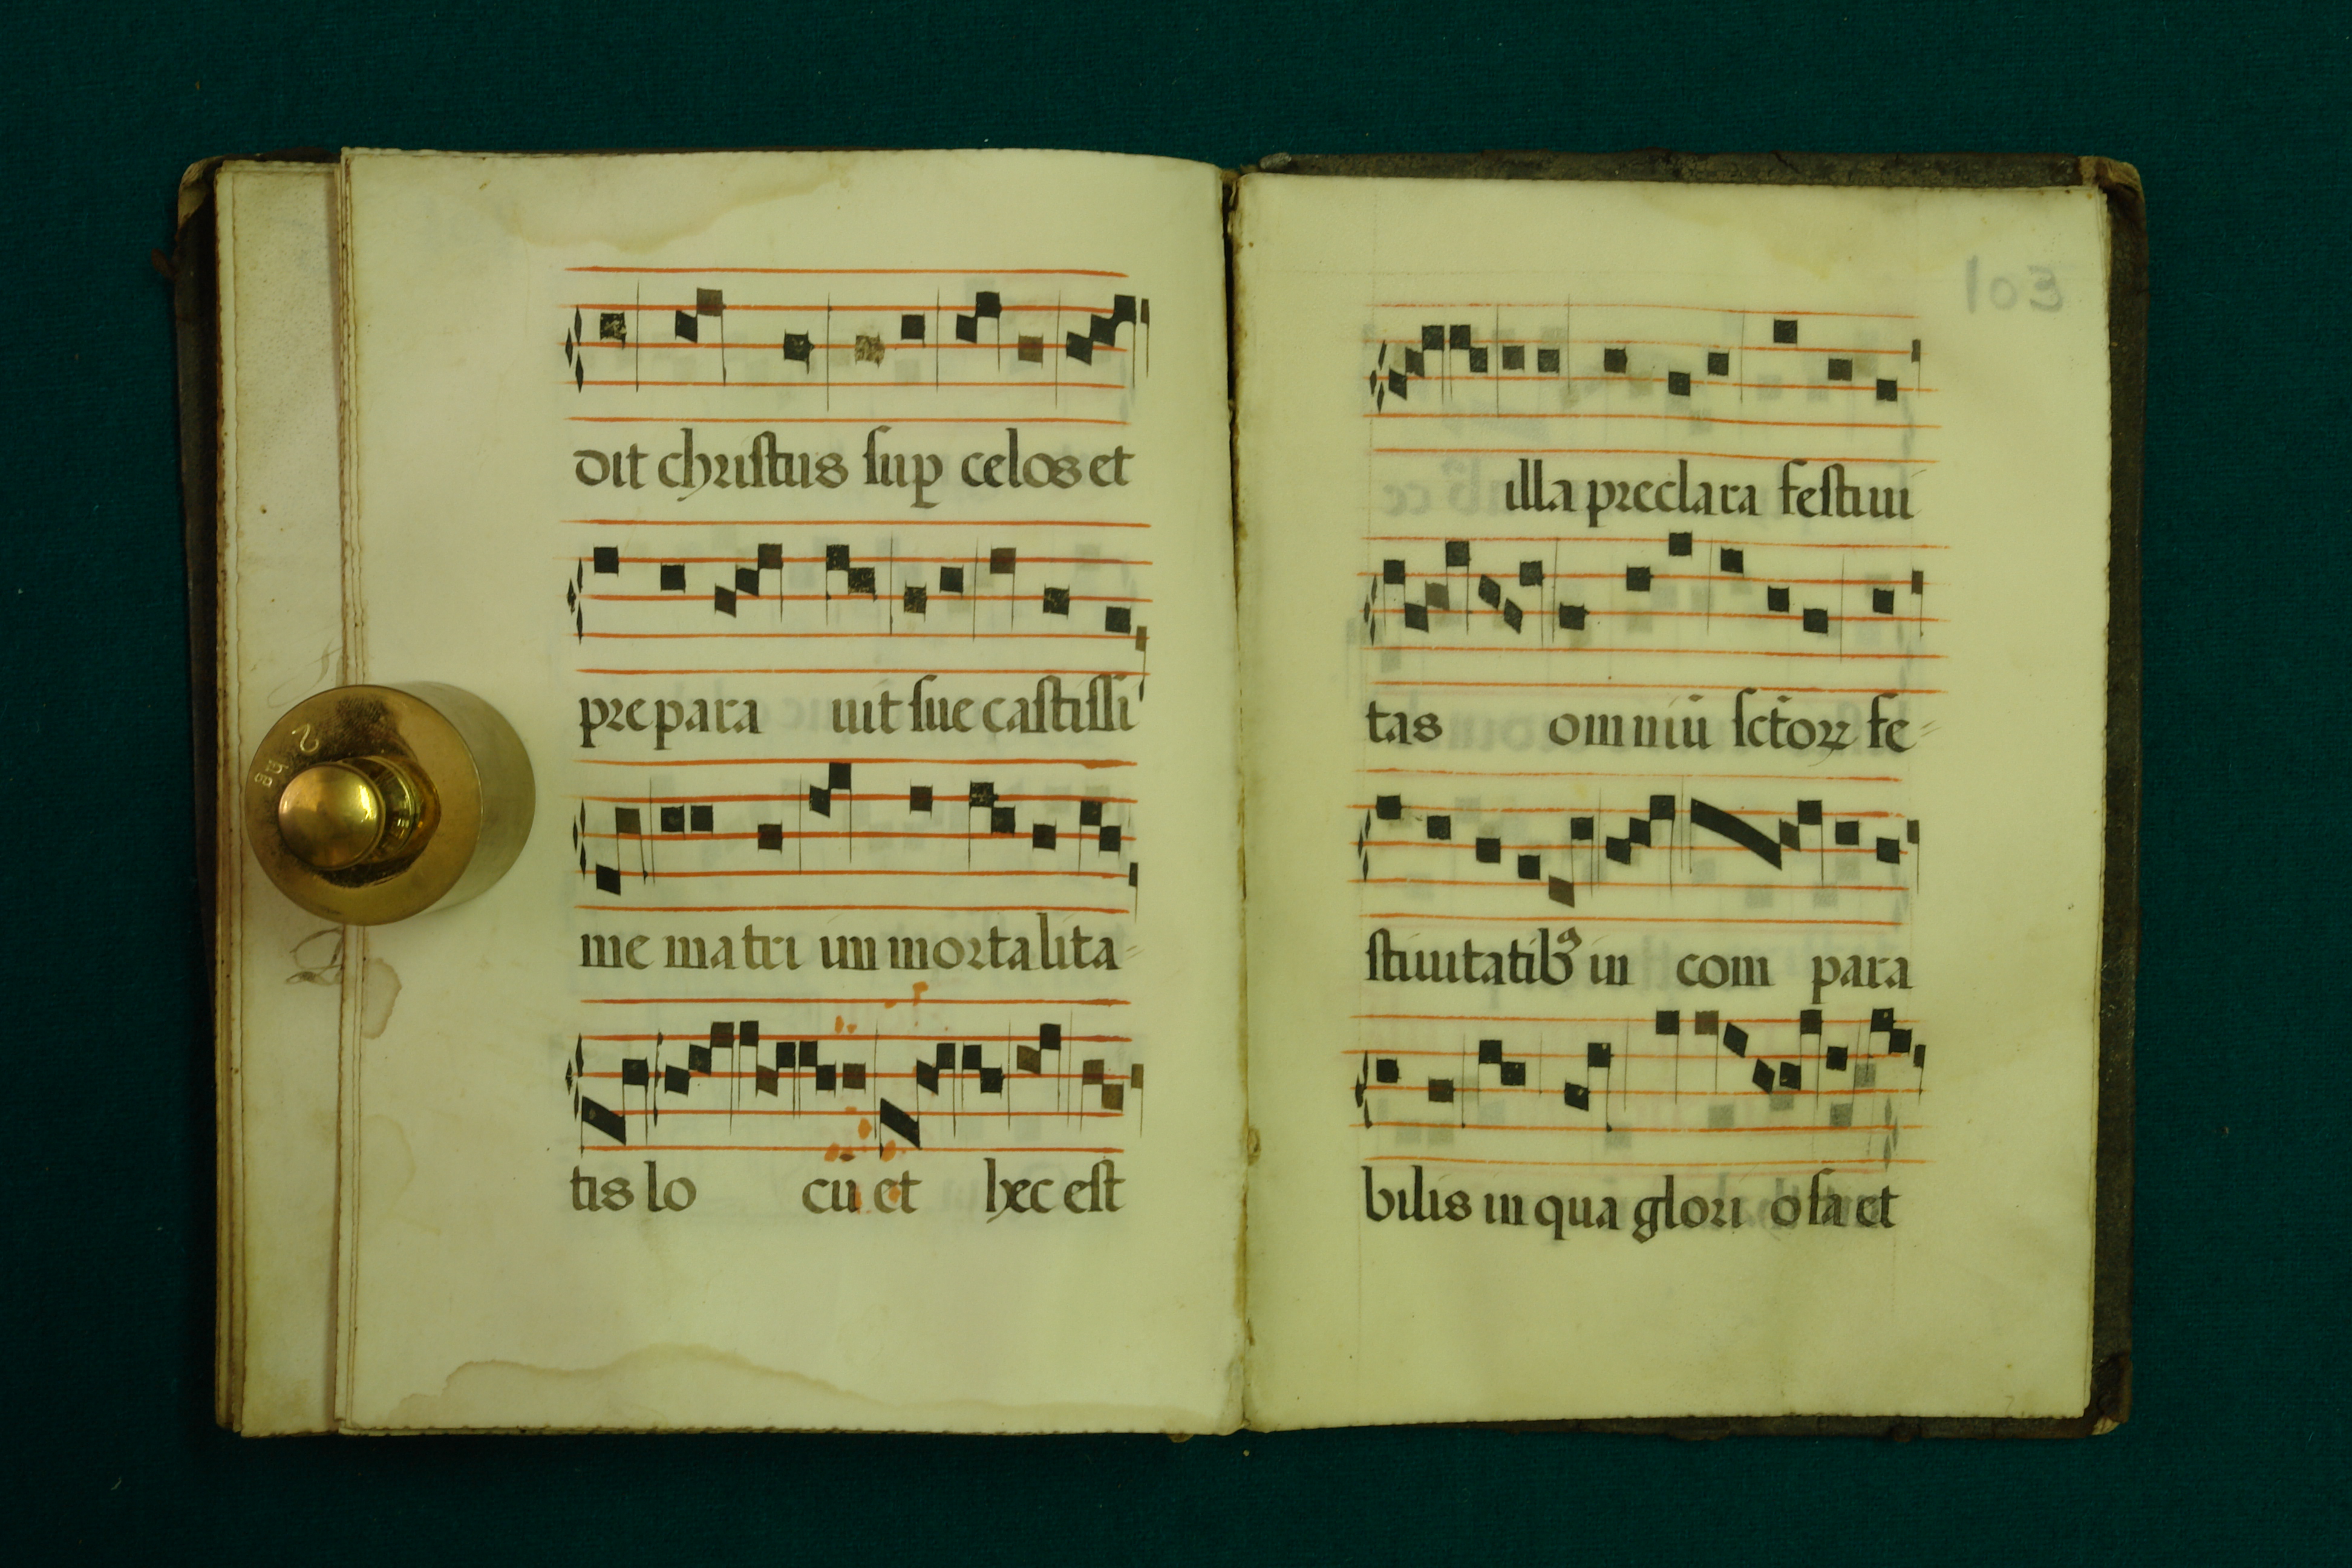 dit christus sup celos et
prepara uit sue castissi
me matri immortalita-
tis lo cū et hec est
103
illa preclara festiui
tas omniū sctoꝝ fe-
stiuitatibꝰ in com para
bilis in qua glori osa et
2 kg